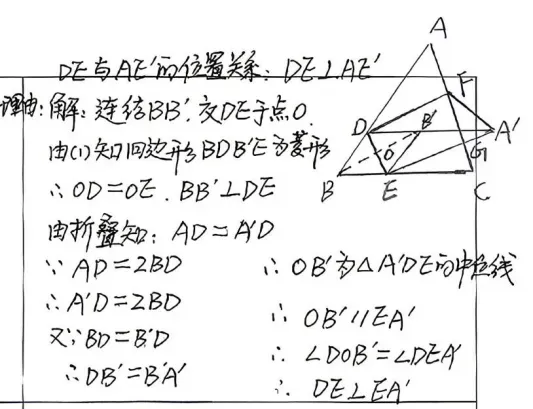 DE与AE'的位置关系：DE⊥AE'
理由：解：连结BB'，交DE于点O.
由(1)知四边形BDB'E为菱形
∴OD=OE. BB'⊥DE
由折叠知：AD=A'D
∵AD=2BD
∴A'D=2BD
又∵BD=B'D
∴DB'=B'A'
∴OB'为△A'DE的中位线
∴OB'∥EA'
∴∠DOB'=∠DEA'
∴DE⊥EA'
A
F
D
B'
A'
O
G
B
E
C